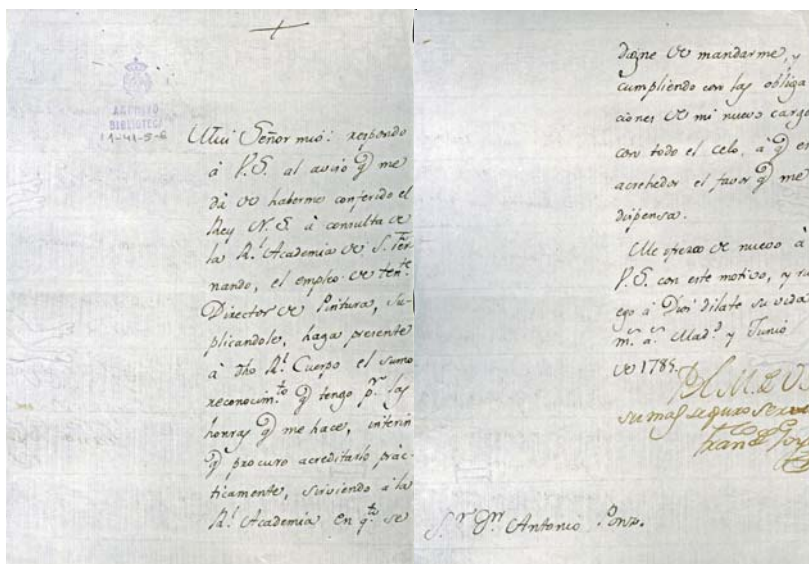 ARCHIVO
BIBLIOTECA
Mui Señor mio: respondo
à V.S. al aviso q̃ me
dà de haberme conferido el
Rey N. S. à consulta de
la Rl. Academia de S. Fer-
nando, el empleo de tente.
Director de Pintura, Su-
plicandole, haga presente
à dho Rl. Cuerpo el sumo
reconocimto. q̃ tengo pr. las
honras q̃ me hace, interin
q̃ procuro acreditarlo prác-
ticamente, sirviendo à la
Rl. Academia en qto. se
digne de mandarme, y
cumpliendo con las obliga
ciones de mi nuevo cargo
con todo el celo, à q̃ es
acrehedor el favor q̃ me
dispensa.
Me ofrezco de nuevo à
V.S. con este motivo, y ru
ego à Dios dilate su vida
ms. as. Madd. y Junio
de 1785.
B.L.M.D.V
su mas seguro serv
Franco. Goy
Sr. Dn. Antonio Ponz.